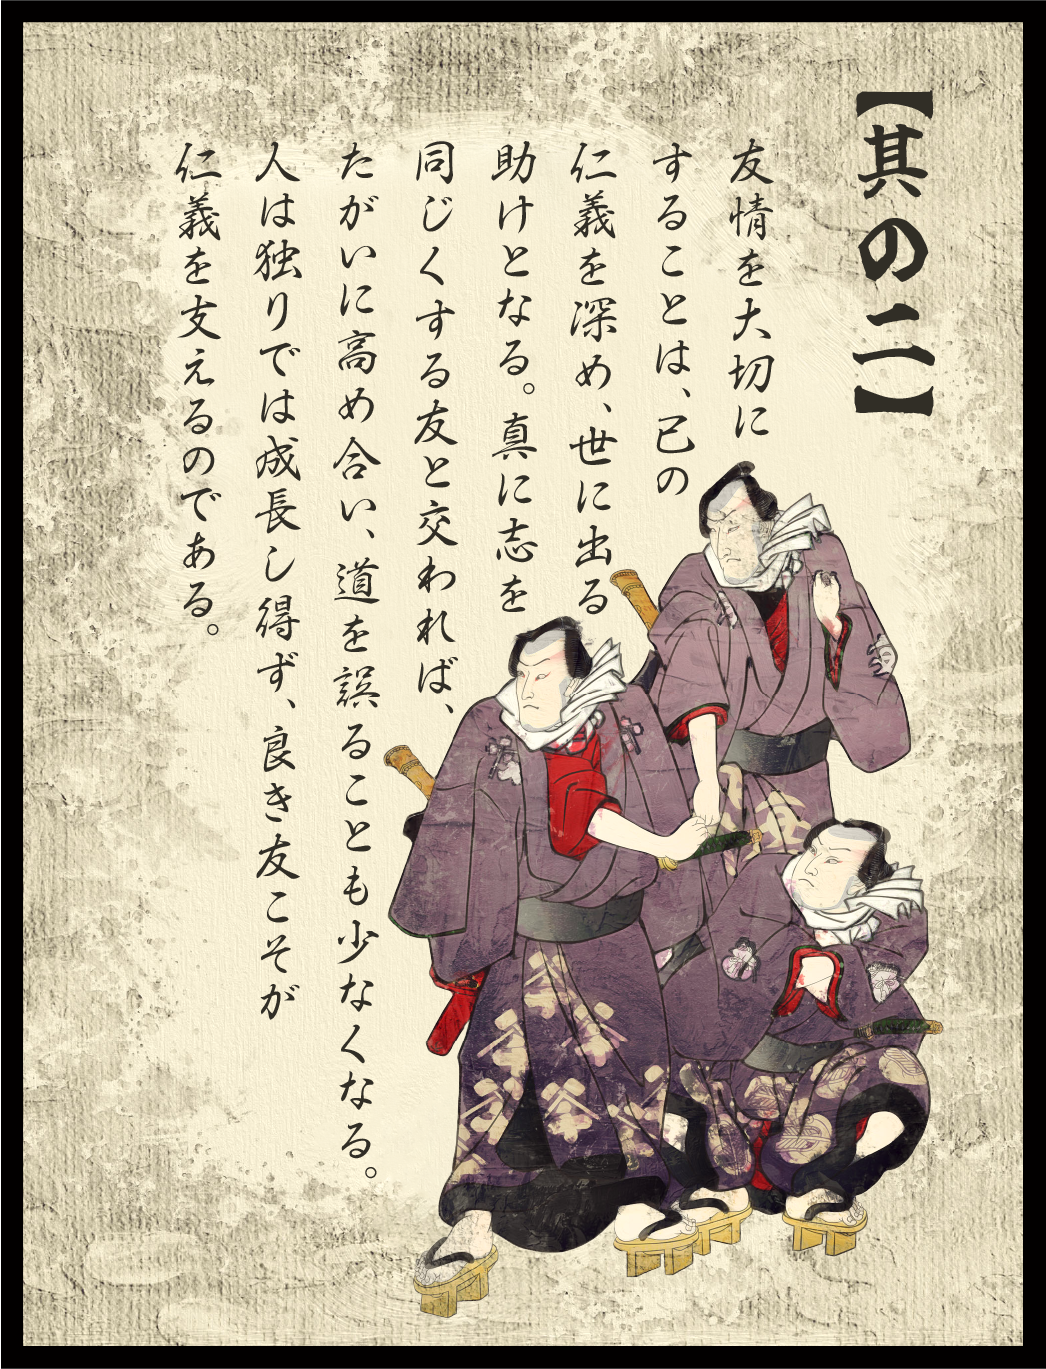 【其の二】
友情を大切に
することは、己の
仁義を深め、世に出る
助けとなる。真に志を
同じくする友と交われば、
たがいに高め合い、道を誤ることも少なくなる。
人は独りでは成長し得ず、良き友こそが
仁義を支えるのである。